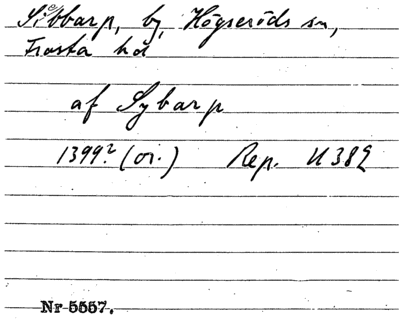 Sibbarp, by, Högseröds sn,
Frosta hd
af Sybarp
1399? (or.) Rep. II 382
Nr 5557.